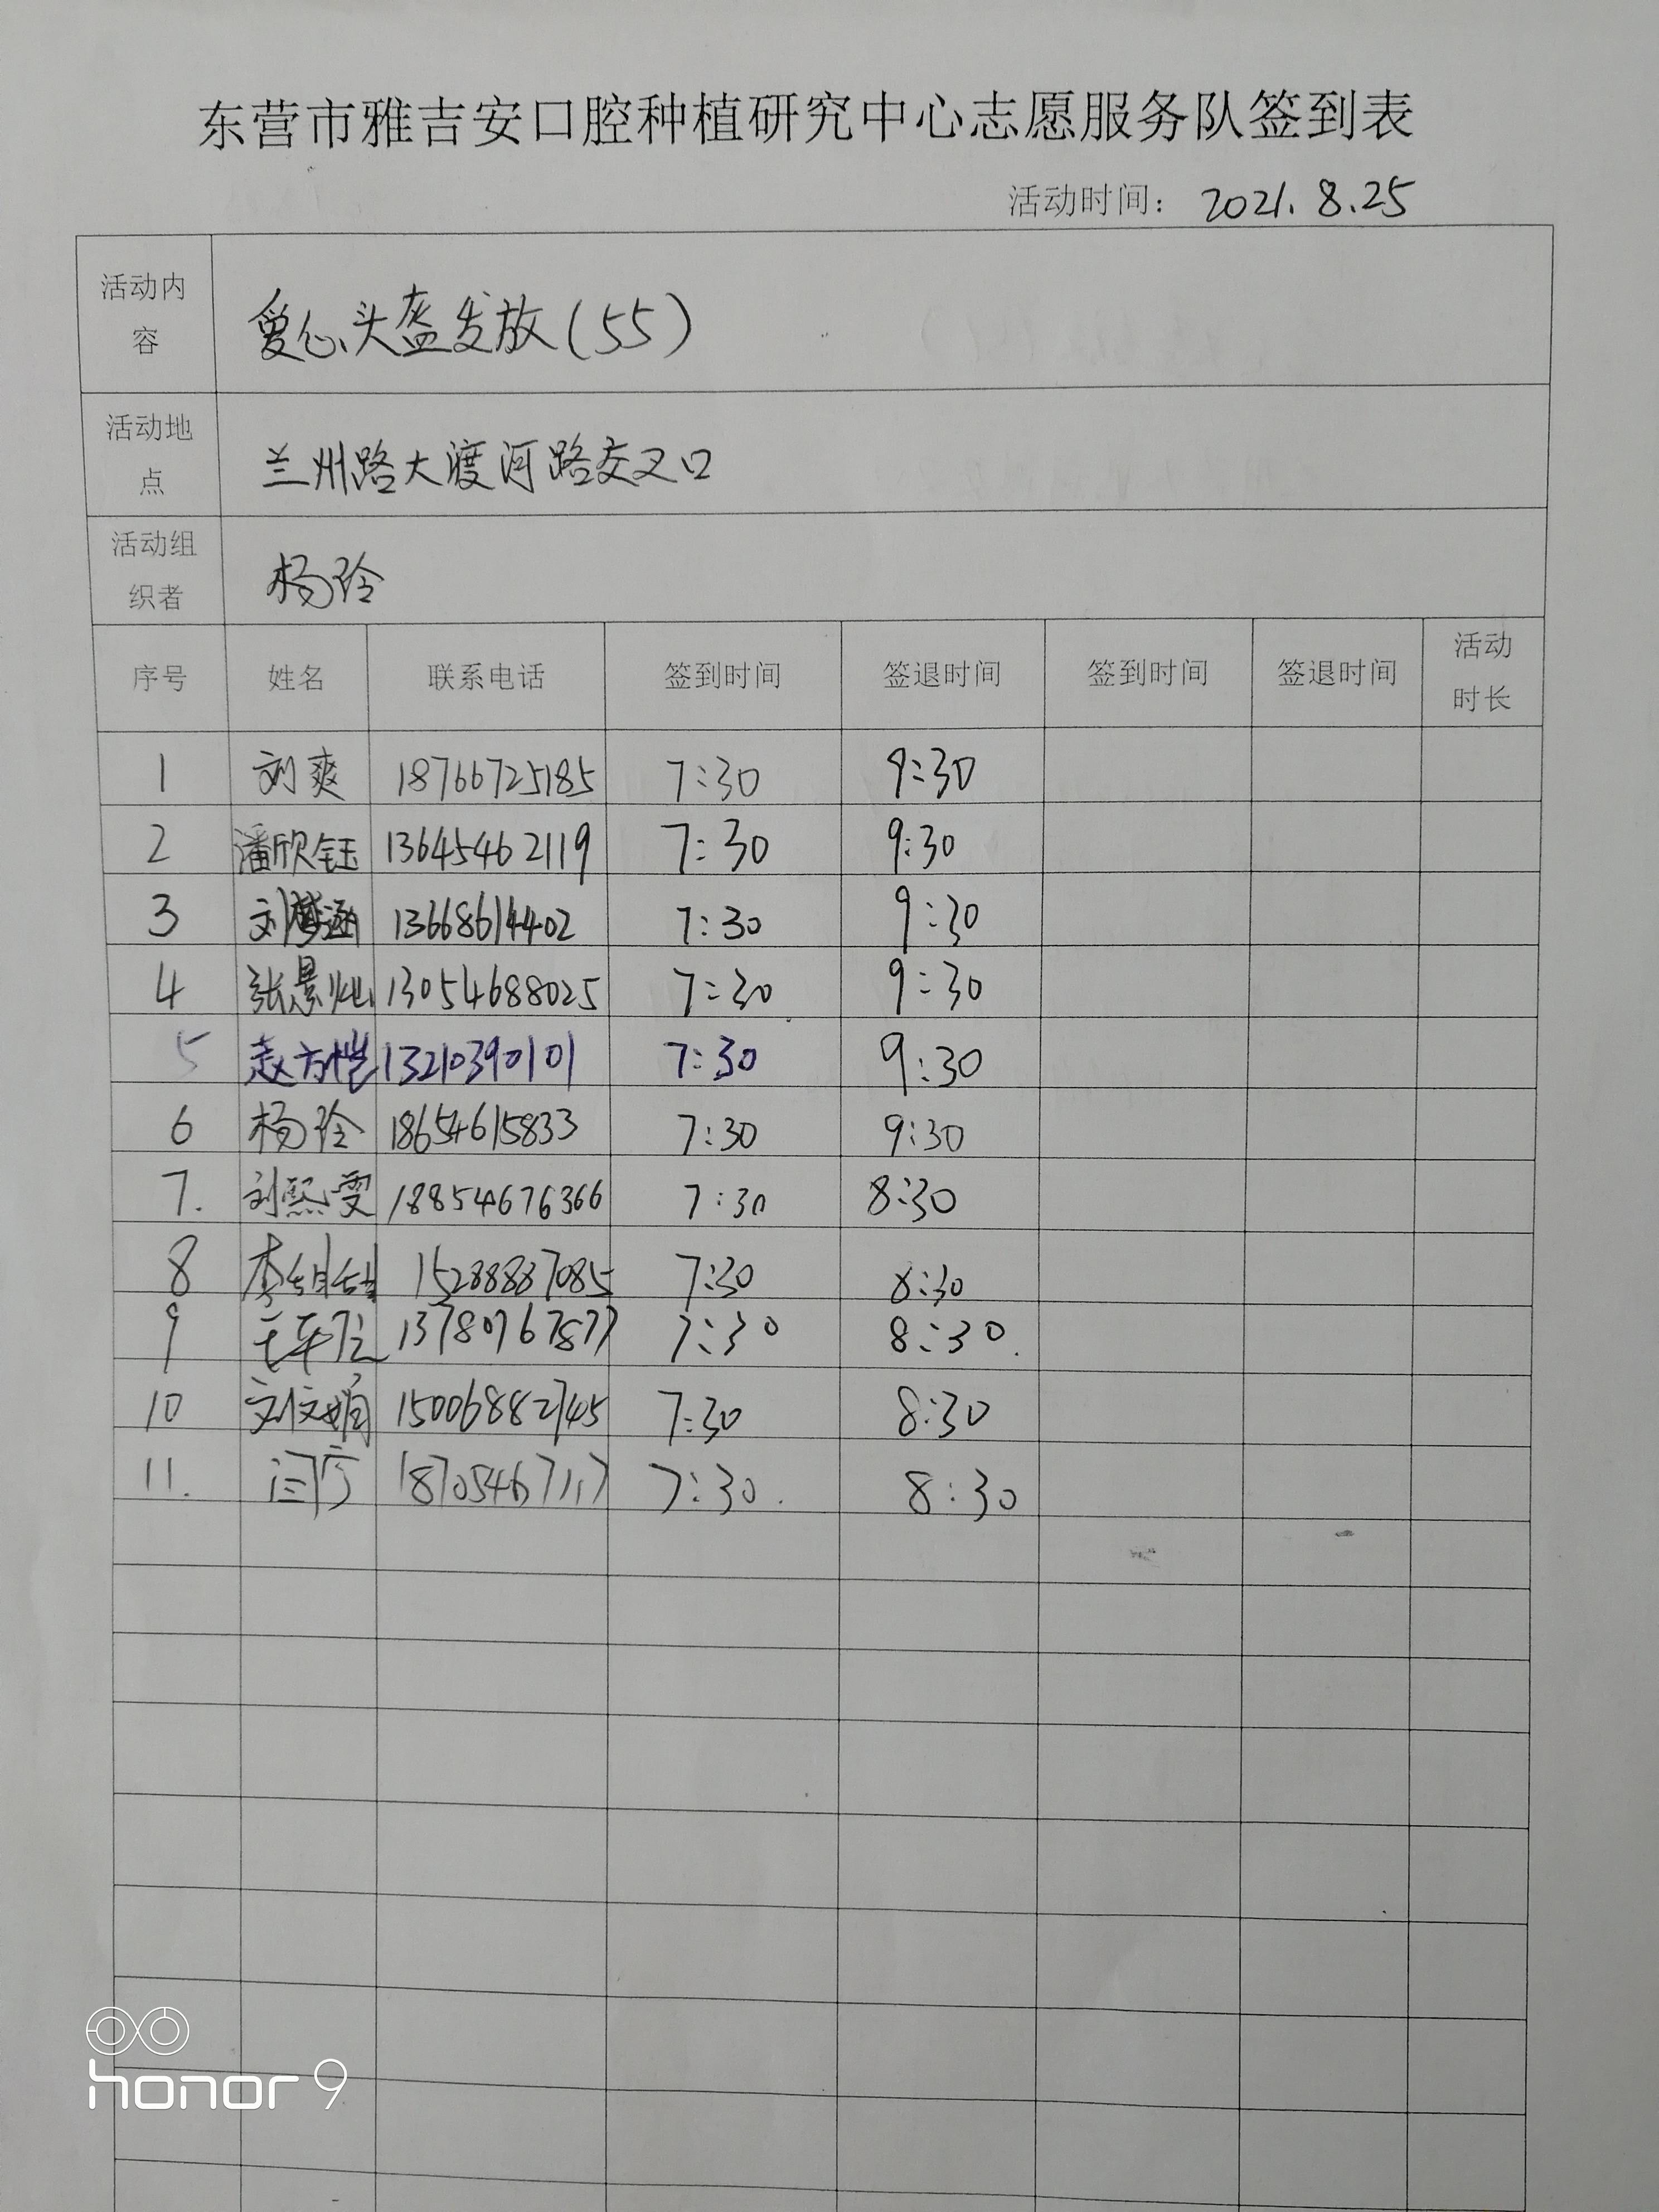 东营市雅吉安口腔种植研究中心志愿服务队签到表
活动时间： 2021.8.25
活动内容 爱心头盔发放(55)
活动地点 兰州路大渡河路交叉口
活动组织者 杨玲
序号 姓名 联系电话 签到时间 签退时间 签到时间 签退时间 活动时长
1 刘爽 18766725185 7:30 9:30
2 潘欣钰 13645462119 7:30 9:30
3 刘梦涵 13668614402 7:30 9:30
4 张景灿 13054688025 7:30 9:30
5 赵方恺 13210390101 7:30 9:30
6 杨玲 18654615833 7:30 9:30
7. 刘熙雯 18854676366 7:30 8:30
8 李娟娟 15288887085 7:30 8:30
9 13780767577 7:30 8:30.
10 刘文娟 15006882745 7:30 8:30
11. 7:30. 8:30
honor 9